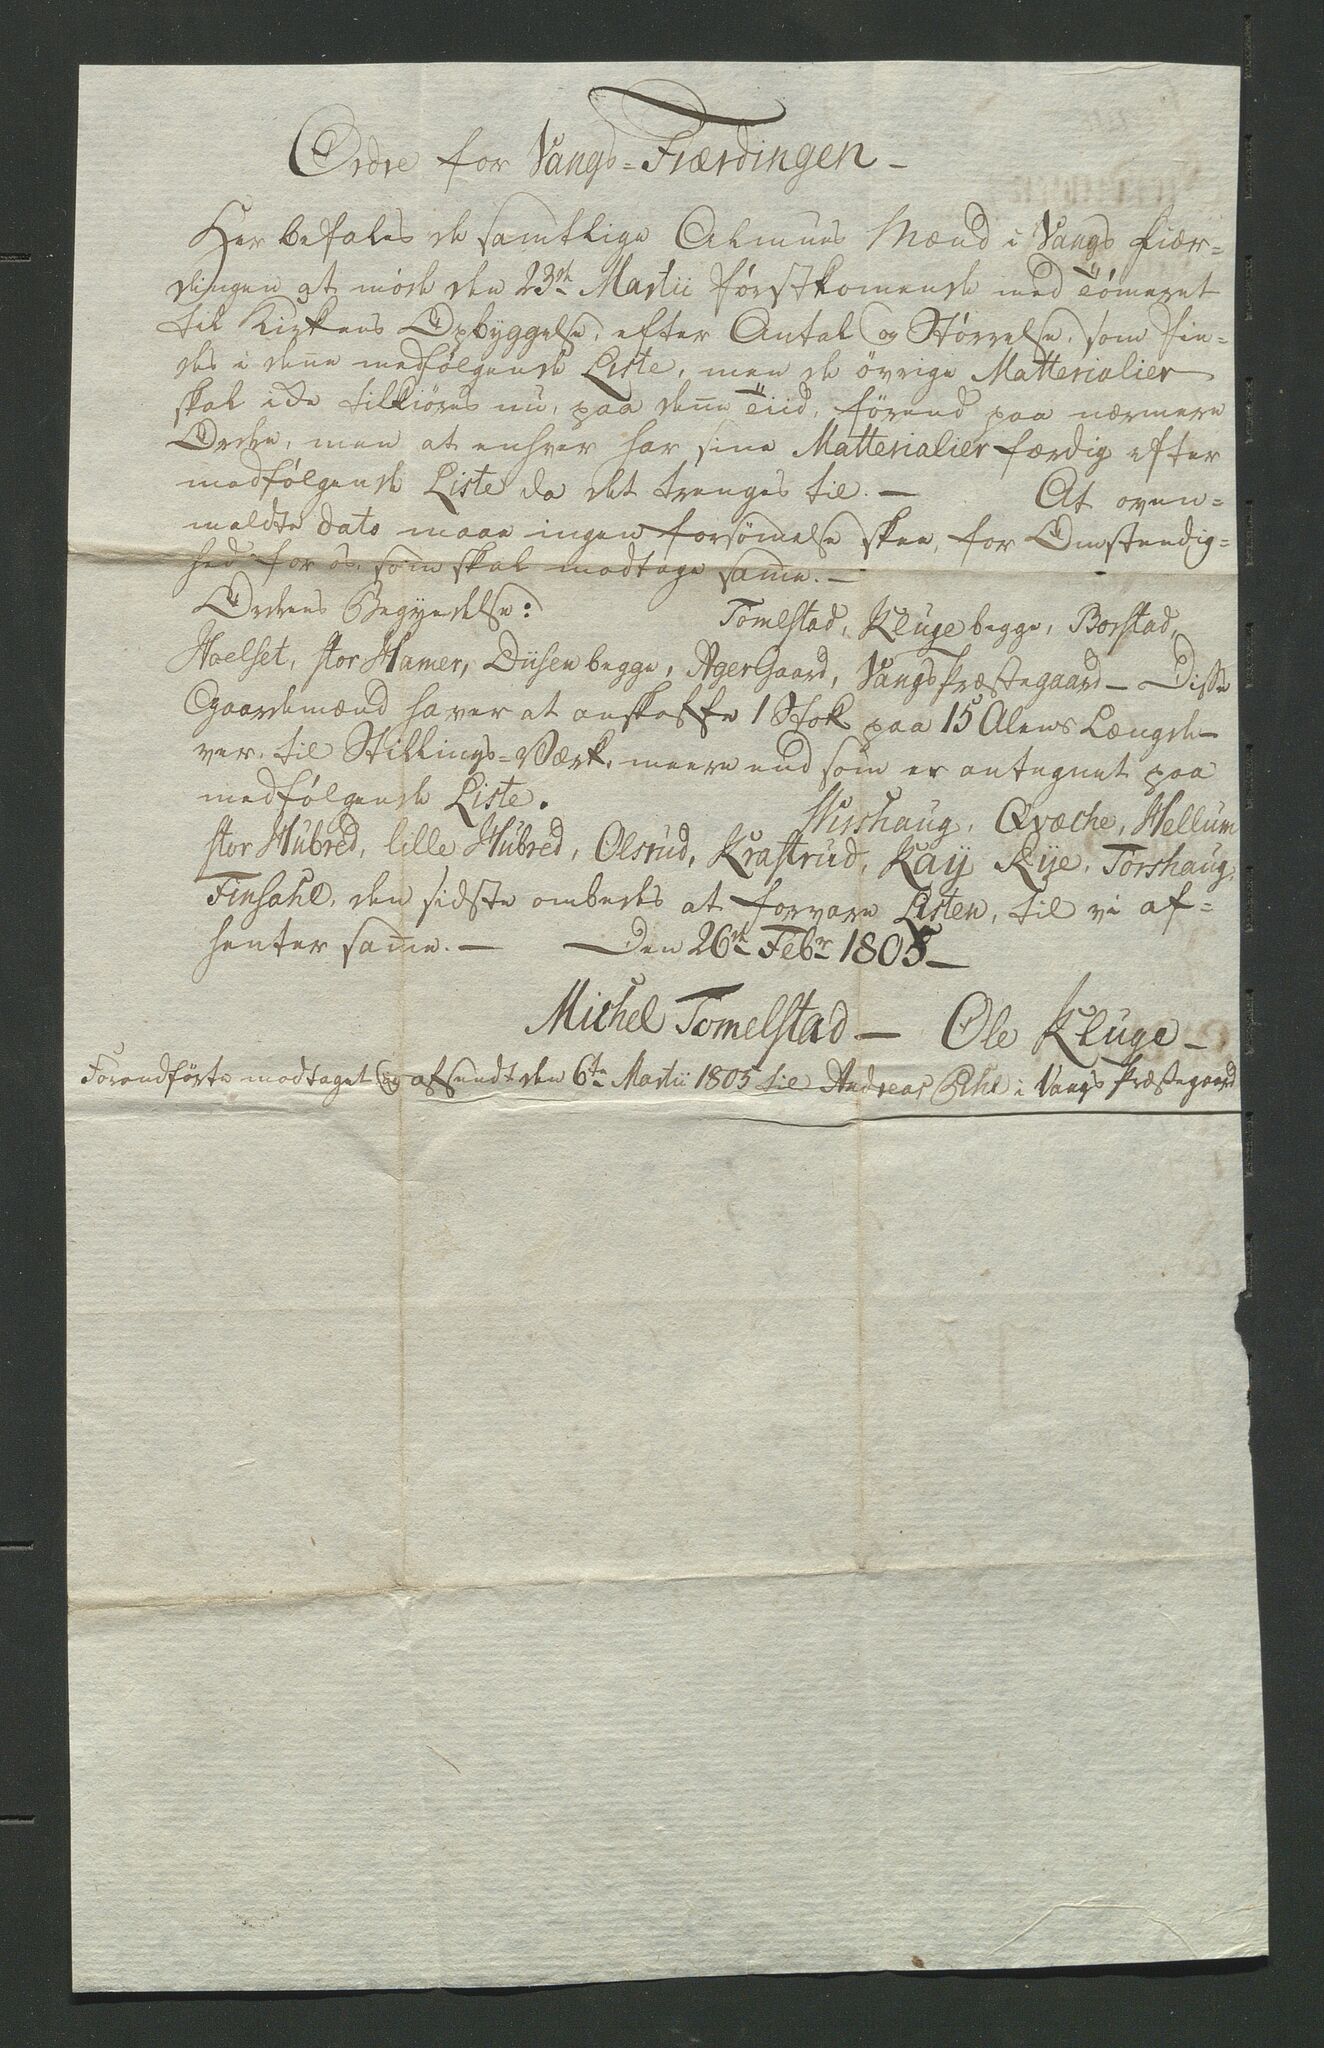 Ordre for Vangs-Fiærdingen –
Her befales de samtlige Almues Mænd i Vangs Fiær-
dingen at møde den 23de Martii førstkomende med Tömeret
til Kirkens Opbyggelse, efter Antal og Størrelse, som fin-
des i dene medfølgende Liste, men de övrige Matterialier
skal icke tilkiöres nu, paa dene Tiid, förend paa nærmere
Ordre, men at enhver har sine Matterialier færdig efter
medfølgende Liste da det trenges til. – At oven-
meldte dato maae ingen forsömelse skee, for Omstendig-
hed for os, som skal modtage same. –
Ordrens Begÿndelse: Tomelstad, Kluge begge, Borstad,
Hoelset, stor Hamer, Diisen begge, AgerGaard, Vangs Præstegaard – Disse
Gaardemænd haver at anskaffe 1 Stok paa 15 Alens Længde –
ver, til Stillings-Værk, meere end som er antegnet paa
medfølgende Liste. Hirshaug, Qvæche, Hellum
stor Hubred, lille Hubred, Olsrud, Krastrud, Kaÿ Rÿe, Torshaug,
Finsahl, den sidste ombedes at forvare Listen, til vi af-
henter same. – Den 26de Febr 1805 –
Michel Tomelstad – Ole Kluge –
Forandförte modtaget og afsendt den 6te Martii 1805 til Andreas i Vangs Præstegaard